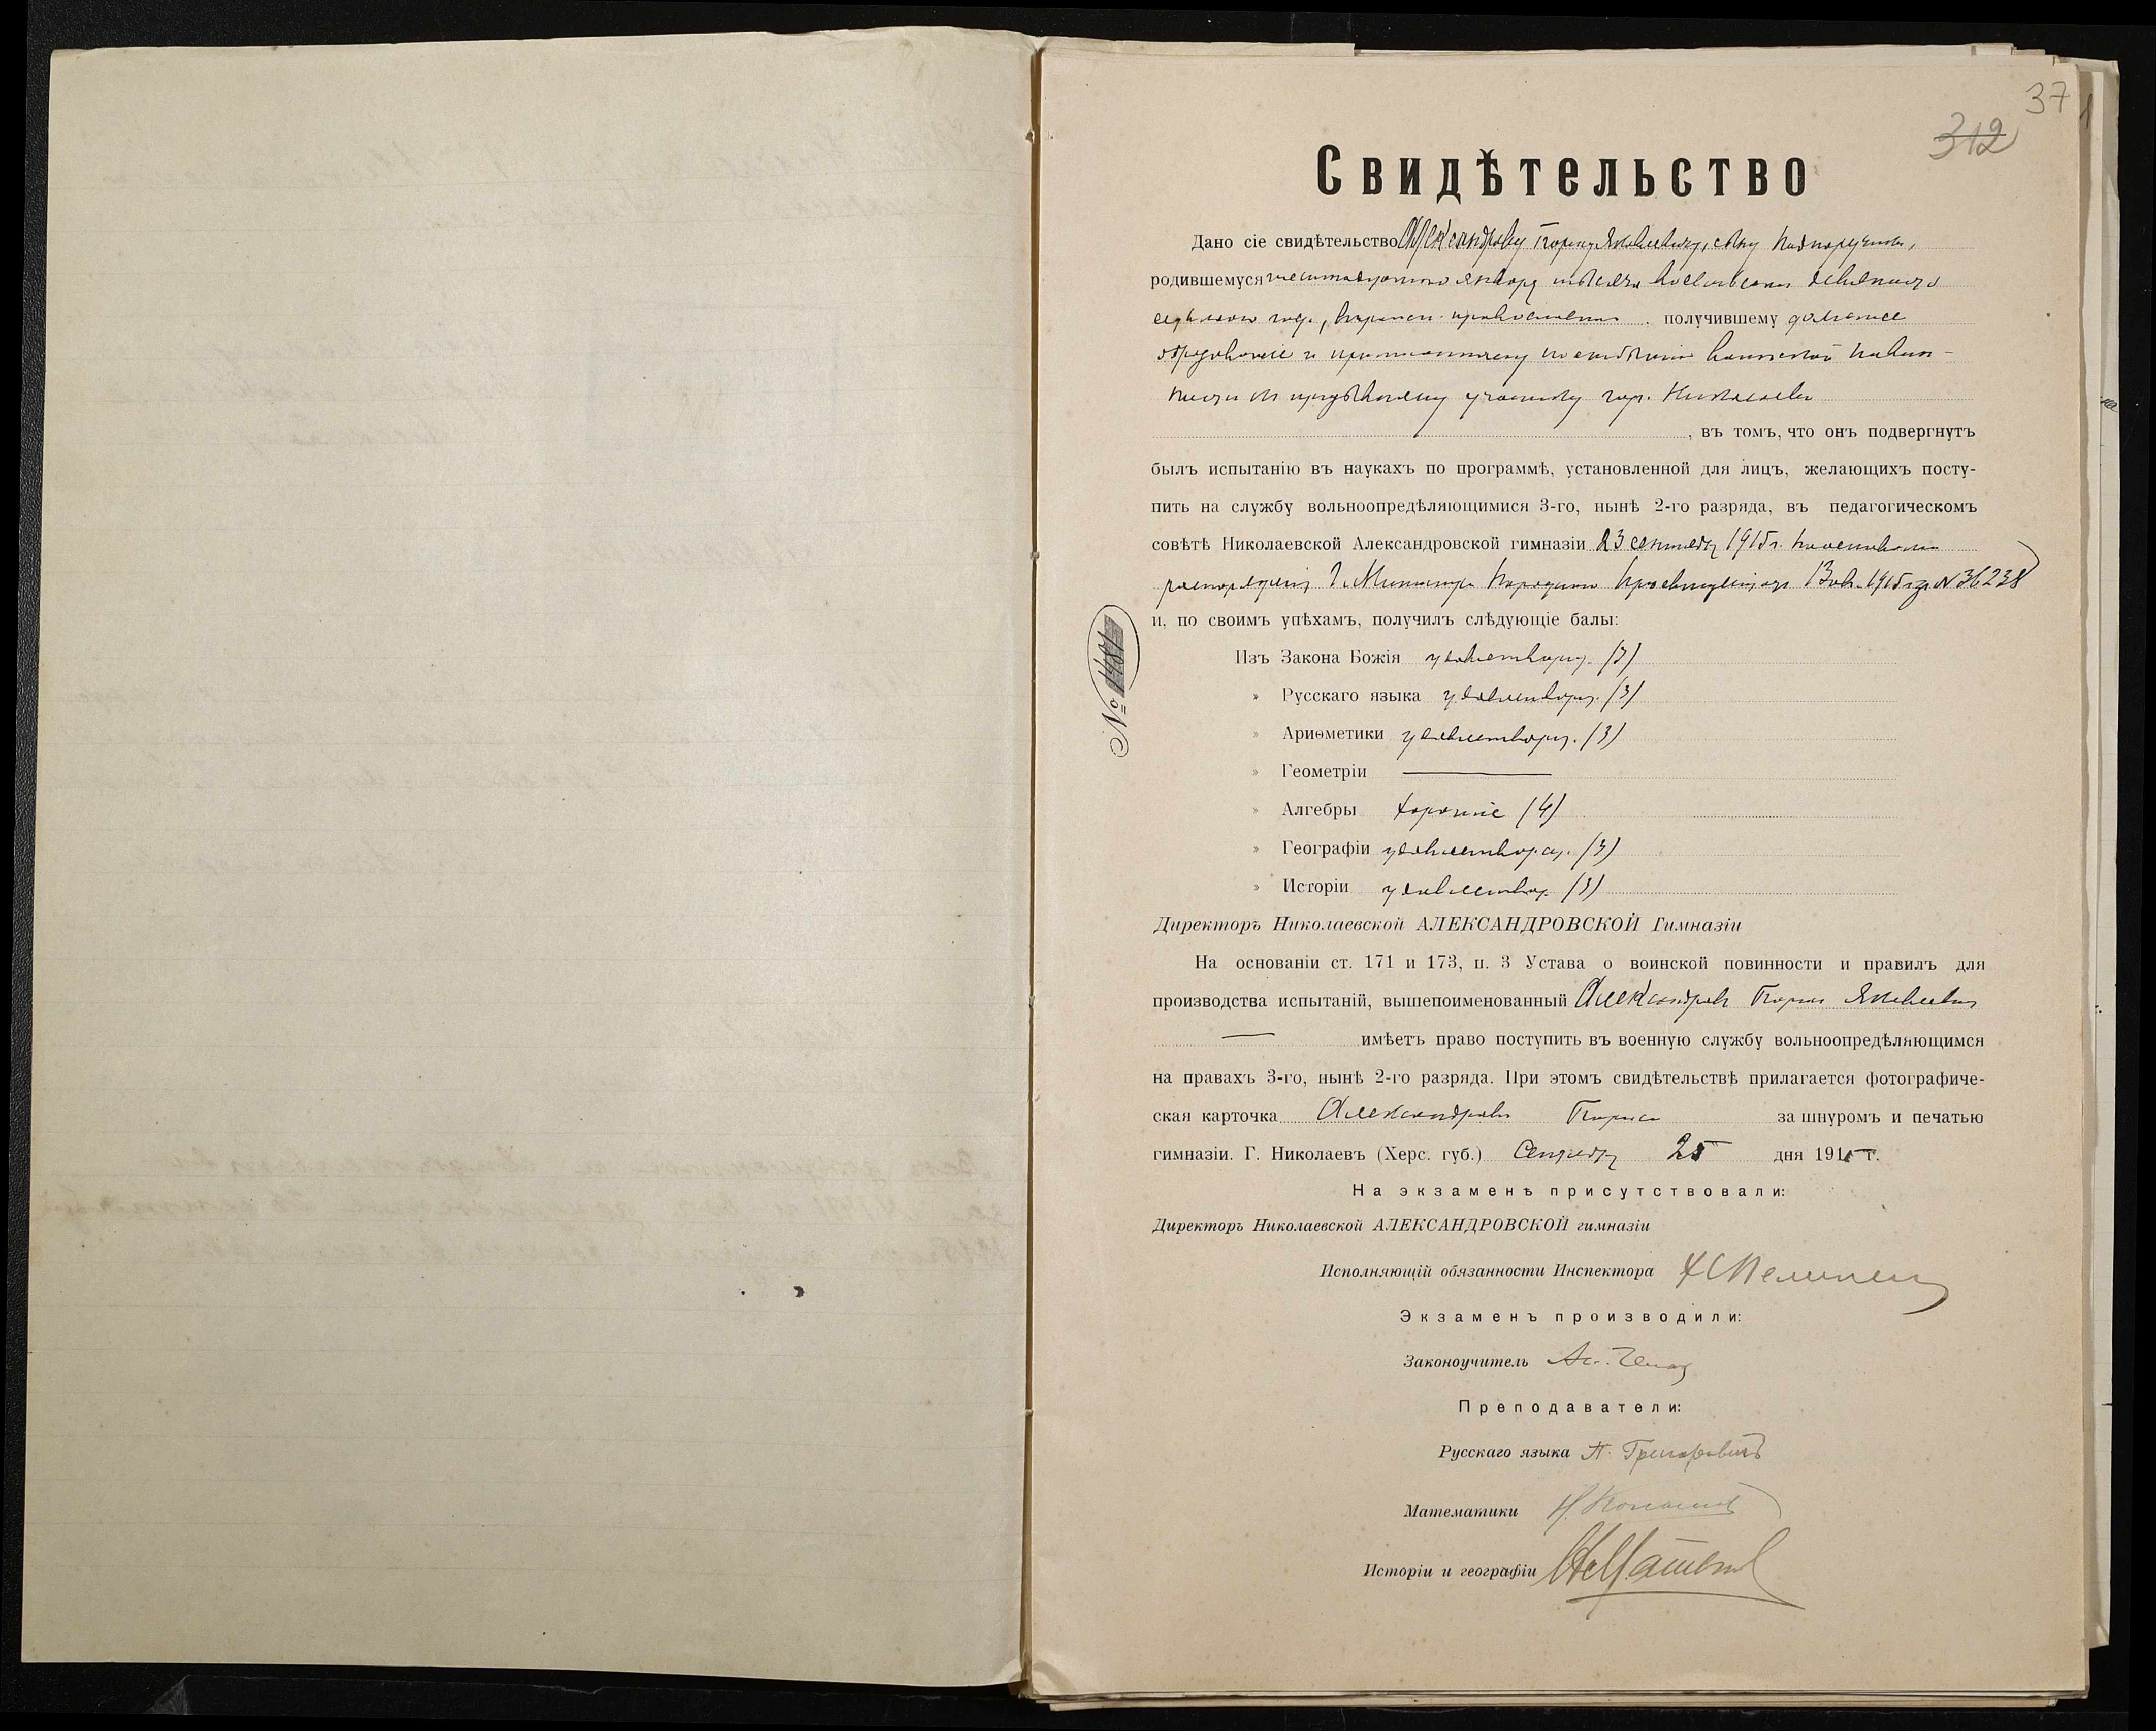 37
312
Свидѣтельство
Дано сіе свидѣтельство Александрову Борису Яковлевичу, сыну подпоручика,
родившемуся шестнадцатого января мѣсяца восемьсотъ девяносто
седьмого года, вѣроисп. православнаго, получившему домашнее
образованіе и приписанному по отбытію воинской повин-
ности къ призывному участку гор. Николаева
, въ томъ, что онъ подвергнутъ
былъ испытанію въ наукахъ по программѣ, установленной для лицъ, желающихъ посту-
пить на службу вольноопредѣляющимися 3-го, нынѣ 2-го разряда, въ педагогическомъ
совѣтѣ Николаевской Александровской гимназіи 23 сентября 1915 г. на основаніи
распоряженія Г. Министра Народнаго Просвѣщенія отъ 13 авг. 1915 г. за № 36238
и, по своимъ упѣхамъ, получилъ слѣдующіе балы:
№ 1481
Изъ Закона Божія удовлетворит. (3)
» Русскаго языка удовлетворит. (3)
» Ариѳметики удовлетворит. (3)
» Геометріи —
» Алгебры хорошіе (4)
» Географіи удовлетворит. (3)
» Исторіи удовлетвор. (3)
Директоръ Николаевской АЛЕКСАНДРОВСКОЙ Гимназіи
На основаніи ст. 171 и 173, п. 3 Устава о воинской повинности и правилъ для
производства испытаній, вышепоименованный Александровъ Борисъ Яковлевич
— имѣетъ право поступить въ военную службу вольноопредѣляющимся
на правахъ 3-го, нынѣ 2-го разряда. При этомъ свидѣтельствѣ прилагается фотографиче-
ская карточка Александрова Бориса за шнуромъ и печатью
гимназіи. Г. Николаевъ (Херс. губ.) Сентября 25 дня 1915 г.
На экзаменѣ присутствовали:
Директоръ Николаевской АЛЕКСАНДРОВСКОЙ гимназіи
Исполняющій обязанности Инспектора
Экзаменъ производили:
Законоучитель
Преподаватели:
Русскаго языка П. Григоровичъ
Математики
Исторіи и географіи